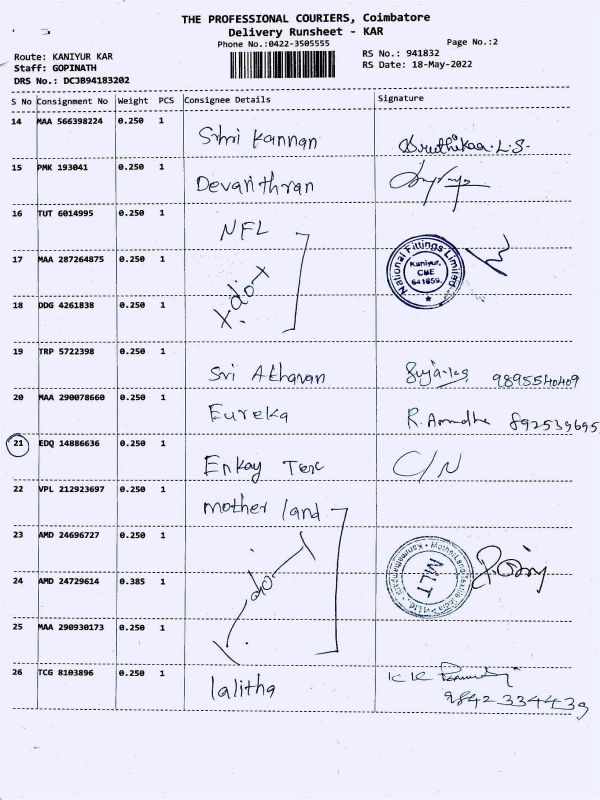 THE PROFESSIONAL COURIERS, Coimbatore
Delivery Runsheet - KAR
Phone No.:0422-3505555
Page No.:2
Route: KANIYUR KAR
RS No.: 941832
Staff: GOPINATH
RS Date: 18-May-2022
DRS No.: DCJB94183202
S No Consignment No Weight PCS Consignee Details Signature
14 MAA 566398224 0.250 1 Sshri Kannan Sruthikaa.L.S.
15 PMK 193041 0.250 1 Devarithran
16 TUT 6014995 0.250 1 NFL
17 MAA 287264875 0.250 1 -do-
National Fittings Limited
Kaniyur,
CBE
641659.
18 DDG 4261838 0.250 1
19 TRP 5722398 0.250 1 Sri Atharan 9895540409
20 MAA 290078660 0.250 1 Eureka R. Amudha 892539695
21 EDQ 14886636 0.250 1 Enkay Tex C/N
22 VPL 212923697 0.250 1 mother land
23 AMD 24696727 0.250 1
24 AMD 24729614 0.385 1 -do-
MLT
25 MAA 290930173 0.250 1
26 TCG 8103896 0.250 1 lalitha KK
9842334439